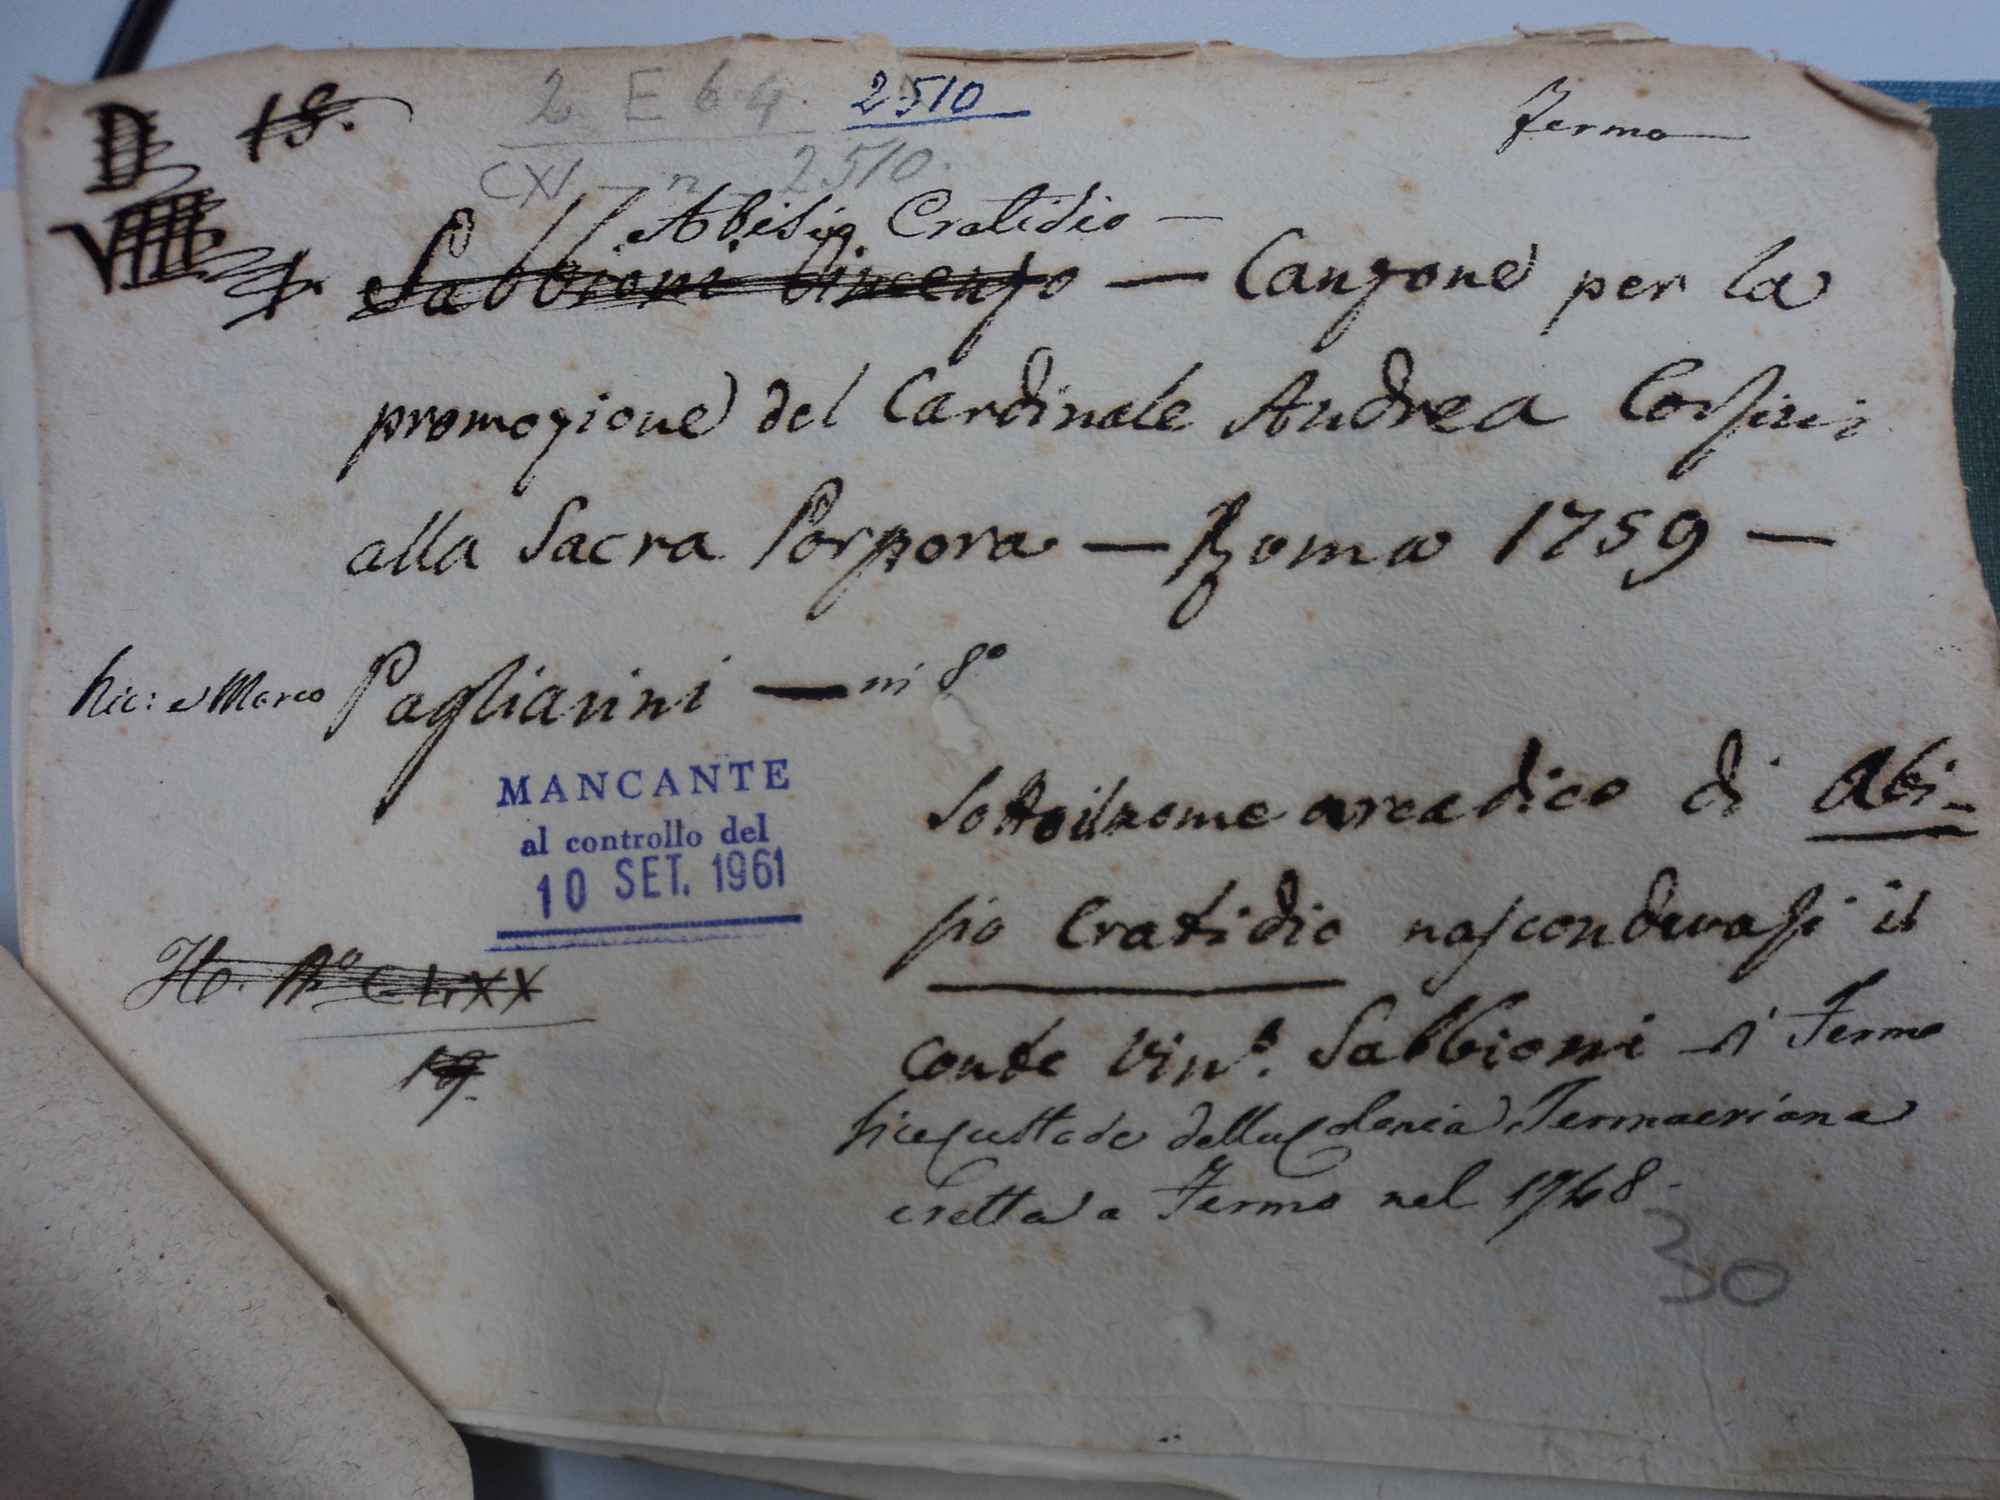 D 18. 2 E 64 2510 Fermo
CXI - n 2510.
VIII Abisio Cratidio —
1. Sabbioni Vincenzo — Canzone per la
promozione del Cardinale Andrea Corsini
alla Sacra Porpora — Roma 1759 —
Nic: e Marco Pagliarini — in 8º
MANCANTE
al controllo del
10 SET. 1961
Sotto il nome arcadico di Abi-
sio Cratidio nascondevasi il
Conte Vinº. Sabbioni di Fermo
Vice Custode della Colonia
eretta a Fermo nel 1748.
Nº CLXX
19.
30